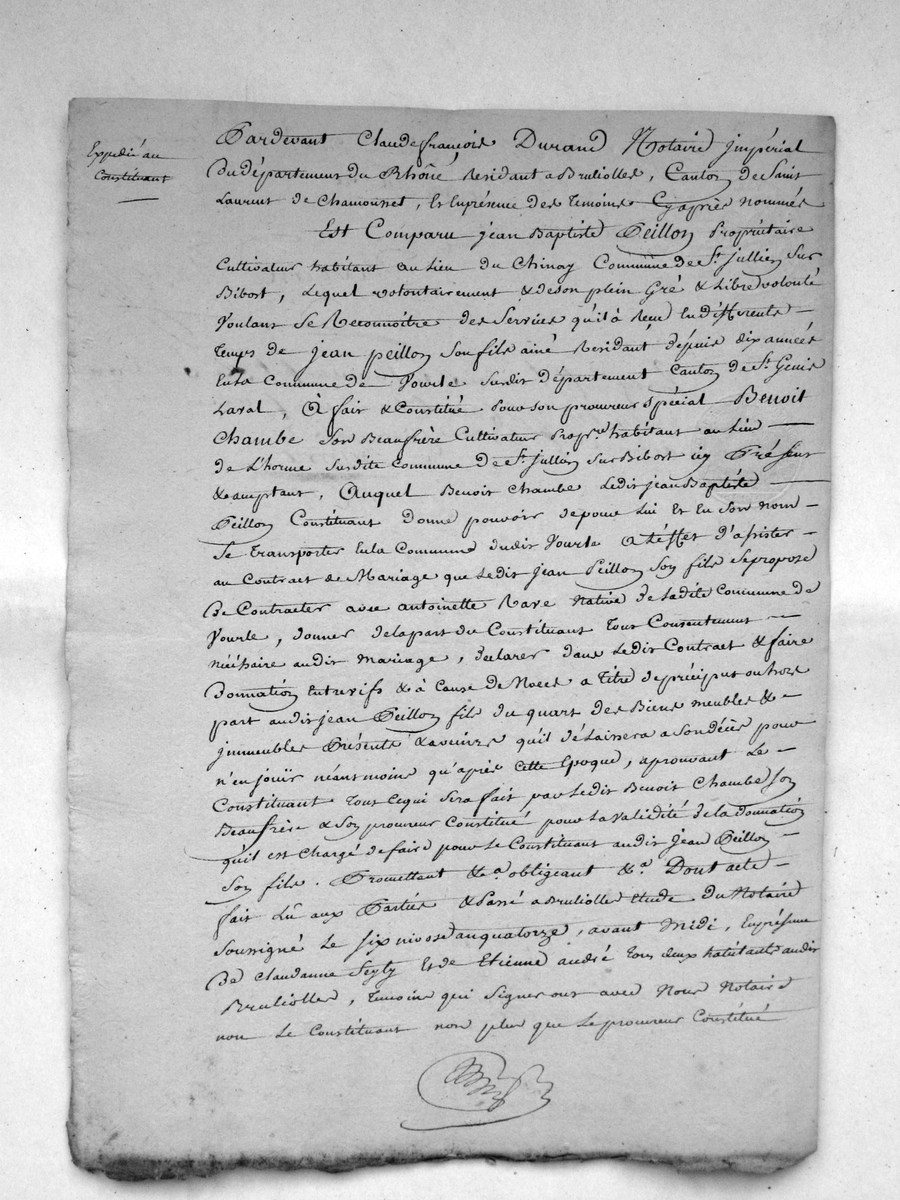 Expedié au
Constituant
Pardevant Claude françois Durand Notaire jmpérial
Du département du Rhône residant a Brulioles, Canton de Saint
Laurent de Chamousset, Et En présence des Temoins Cyaprès nommés
Est Comparu jean Baptiste Peillon Propriétaire
Cultivateur habitant au Lieu du Chinay Commune de St. jullien Sur
Bibost, Lequel volontairement & de son plein Gré & Libre volonté
Voulant Se Reconnoitre des Services qu'il à Reçu En différents
temps de jean peillon Son fils ainé Residant depuis dix années
En la Commune de Vourle Susdit département Canton de St. Genis
Laval, A fait & Constitué pour son procureur spécial Benoit
Chambe Son Beaufrère Cultivateur Propre. habitant au Lieu
de L'horme Susdite Commune de St. jullien Sur Bibost icy Présent
& acceptant, Auquel Benoit Chambe Ledit jean Baptiste
Peillon Constituant donne pouvoir de pour Lui Et En Son nom
Se transporter En la Commune dudit Vourle A L'effet d'assister
au Contract de Mariage que Ledit jean Peillon Son fils Se propose
De Contracter avec antoinette Rave Native de Ladite Commune de
Vourle, donner de la part du Constituant Tout Consentement
nécéssaire audit mariage, declarer dans Ledit Contract & faire
Donnation Entrevifs & à Cause de Noces a Titre de préciput ou hors
part audit jean Peillon fils du quart des Biens meubles &
jmmeubles Présents & avenirs qu'il délaissera a Son décès pour
n'en joüir néantmoins qu'après Cette Epoque, aprouvant Le
Constituant Tout Ce qui Sera fait par Ledit Benoit Chambe Son
Beaufrère & Son procureur Constitué pour La validité de la Donnation
qu'il est Chargé de faire pour Le Constituant audit jean Peillon
Son fils. Promettant &a. obligeant &a. Dont acte
fait Lû aux Parties & Passé a Brulioles Etude du Notaire
Soussigné Le Six nivose an quatorze, avant Midi, En présence
De Claudanne Et de Etienne andré Tous deux habitants audit
Brulioles, Temoins qui Signeront avec Nous Notaire
non Le Constituant non plus que Le procureur Constitué